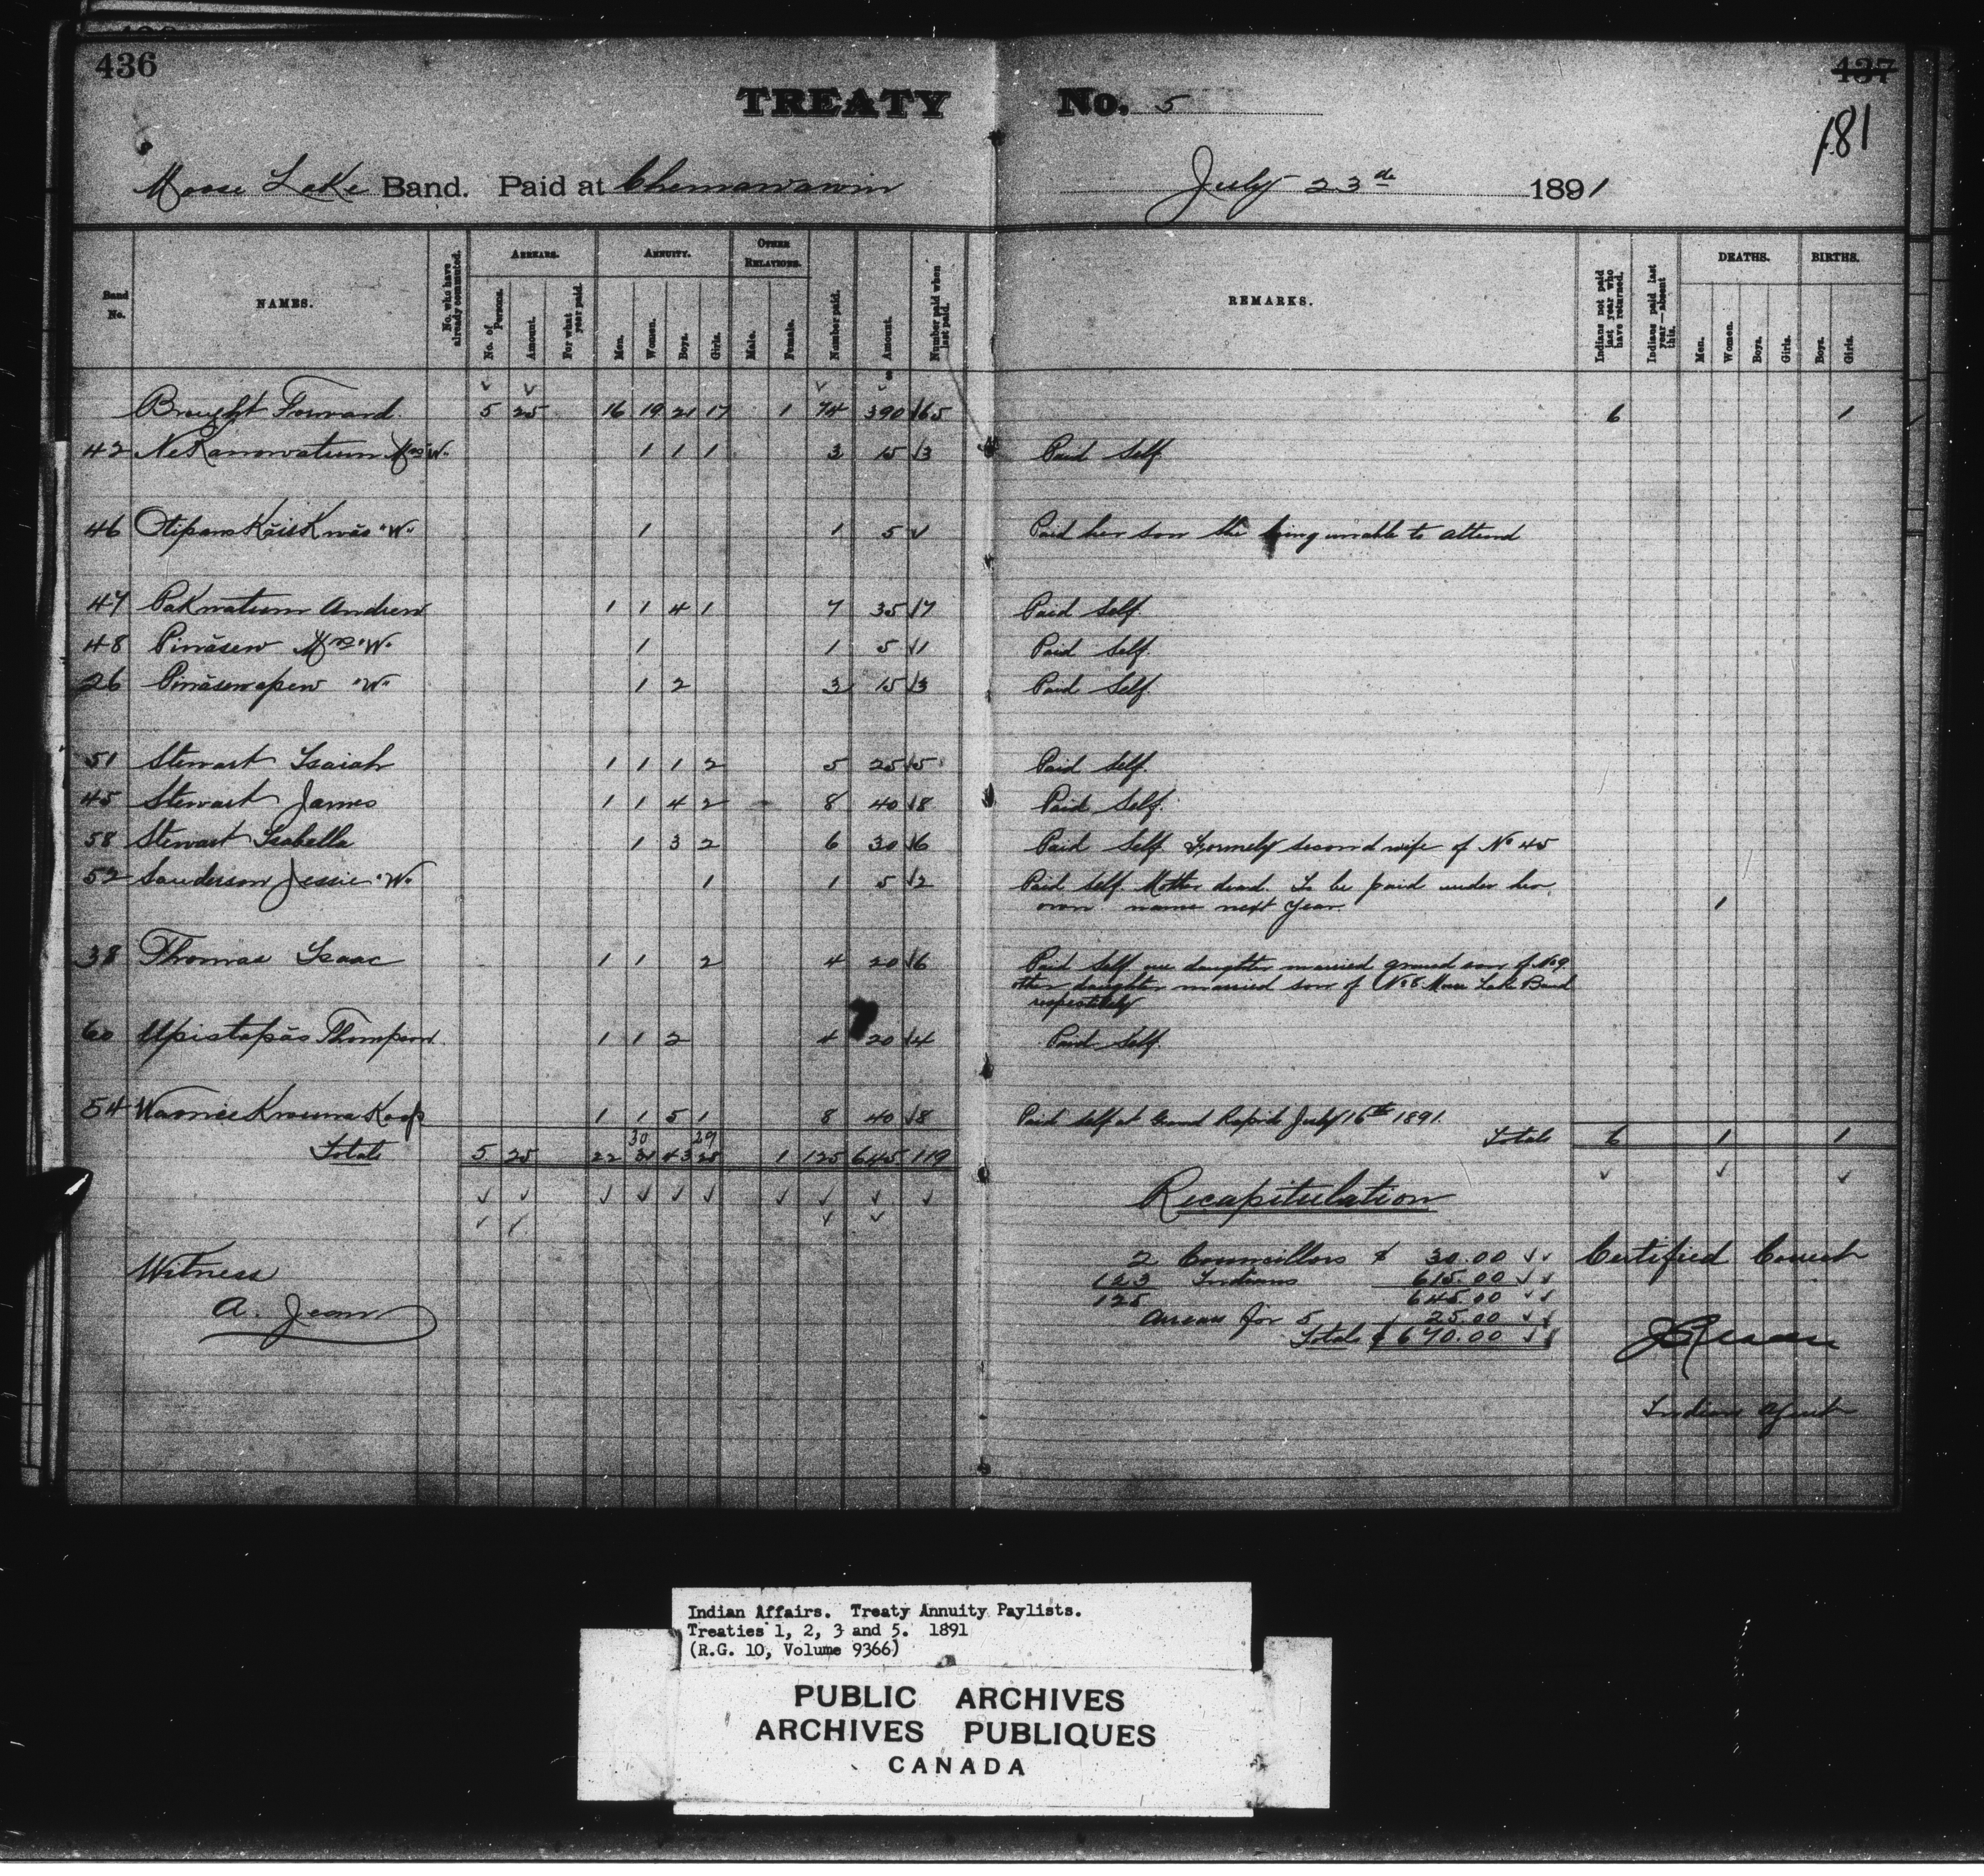 436
437
181
TREATY No. 5
Moose Lake Band. Paid at Chemawawin July 23rd 1891
Band No. NAMES. No. who have already commuted. ARREARS. No. of Persons. Amount. For what year paid. ANNUITY. Men. Women. Boys. Girls. OTHER RELATIONS. Male. Female. Number paid. Amount. Number paid when last paid. REMARKS. Indians not paid last year who have returned. Indians paid last year—absent this. DEATHS. Men. Women. Boys. Girls. BIRTHS. Boys. Girls.
Brought Forward 5 25 16 19 21 17 1 74 390 65 6 1
42 NeKanowatum Mrs "W" 1 1 1 3 15 3 Paid Self.
46 "W" 1 1 5 Paid her son she being unable to attend
47 Pakwatum Andrew 1 1 4 1 7 35 7 Paid Self.
48 Pināsew Mrs "W" 1 1 5 1 Paid Self.
26 Pināsewapew "W" 1 2 3 15 3 Paid Self.
51 Stewart Isaiah 1 1 1 2 5 25 5 Paid Self.
45 Stewart James 1 1 4 2 8 40 8 Paid Self.
58 Stewart Isabella 1 3 2 6 30 6 Paid Self Formely second wife of No 45
52 Sanderson Jessie "W" 1 1 5 2 Paid Self. Mother dead. To be paid under her
own name next year. 1
38 Thomas Isaac 1 1 2 4 20 6 Paid Self one daughter married grand son of No 9
other daughter married son of No 8 Moose Lake Band
respectively
60 Upistapās Thompson 1 1 2 4 20 4 Paid Self.
54 1 1 5 1 8 40 8 Paid self at Grand Rapids July 16th 1891.
30 29
Totals 5 25 22 31 43 28 1 125 645 119 Totals 6 1 1
Recapitulation
2 Councillors $ 30.00
123 Indians 615.00
125 645.00
Arrears for 5 25.00
Totals $ 670.00
Certified Correct
Indian Agent
Witness
A. Jean
Indian Affairs. Treaty Annuity Paylists.
Treaties 1, 2, 3 and 5. 1891
(R.G. 10, Volume 9366)
PUBLIC ARCHIVES
ARCHIVES PUBLIQUES
CANADA